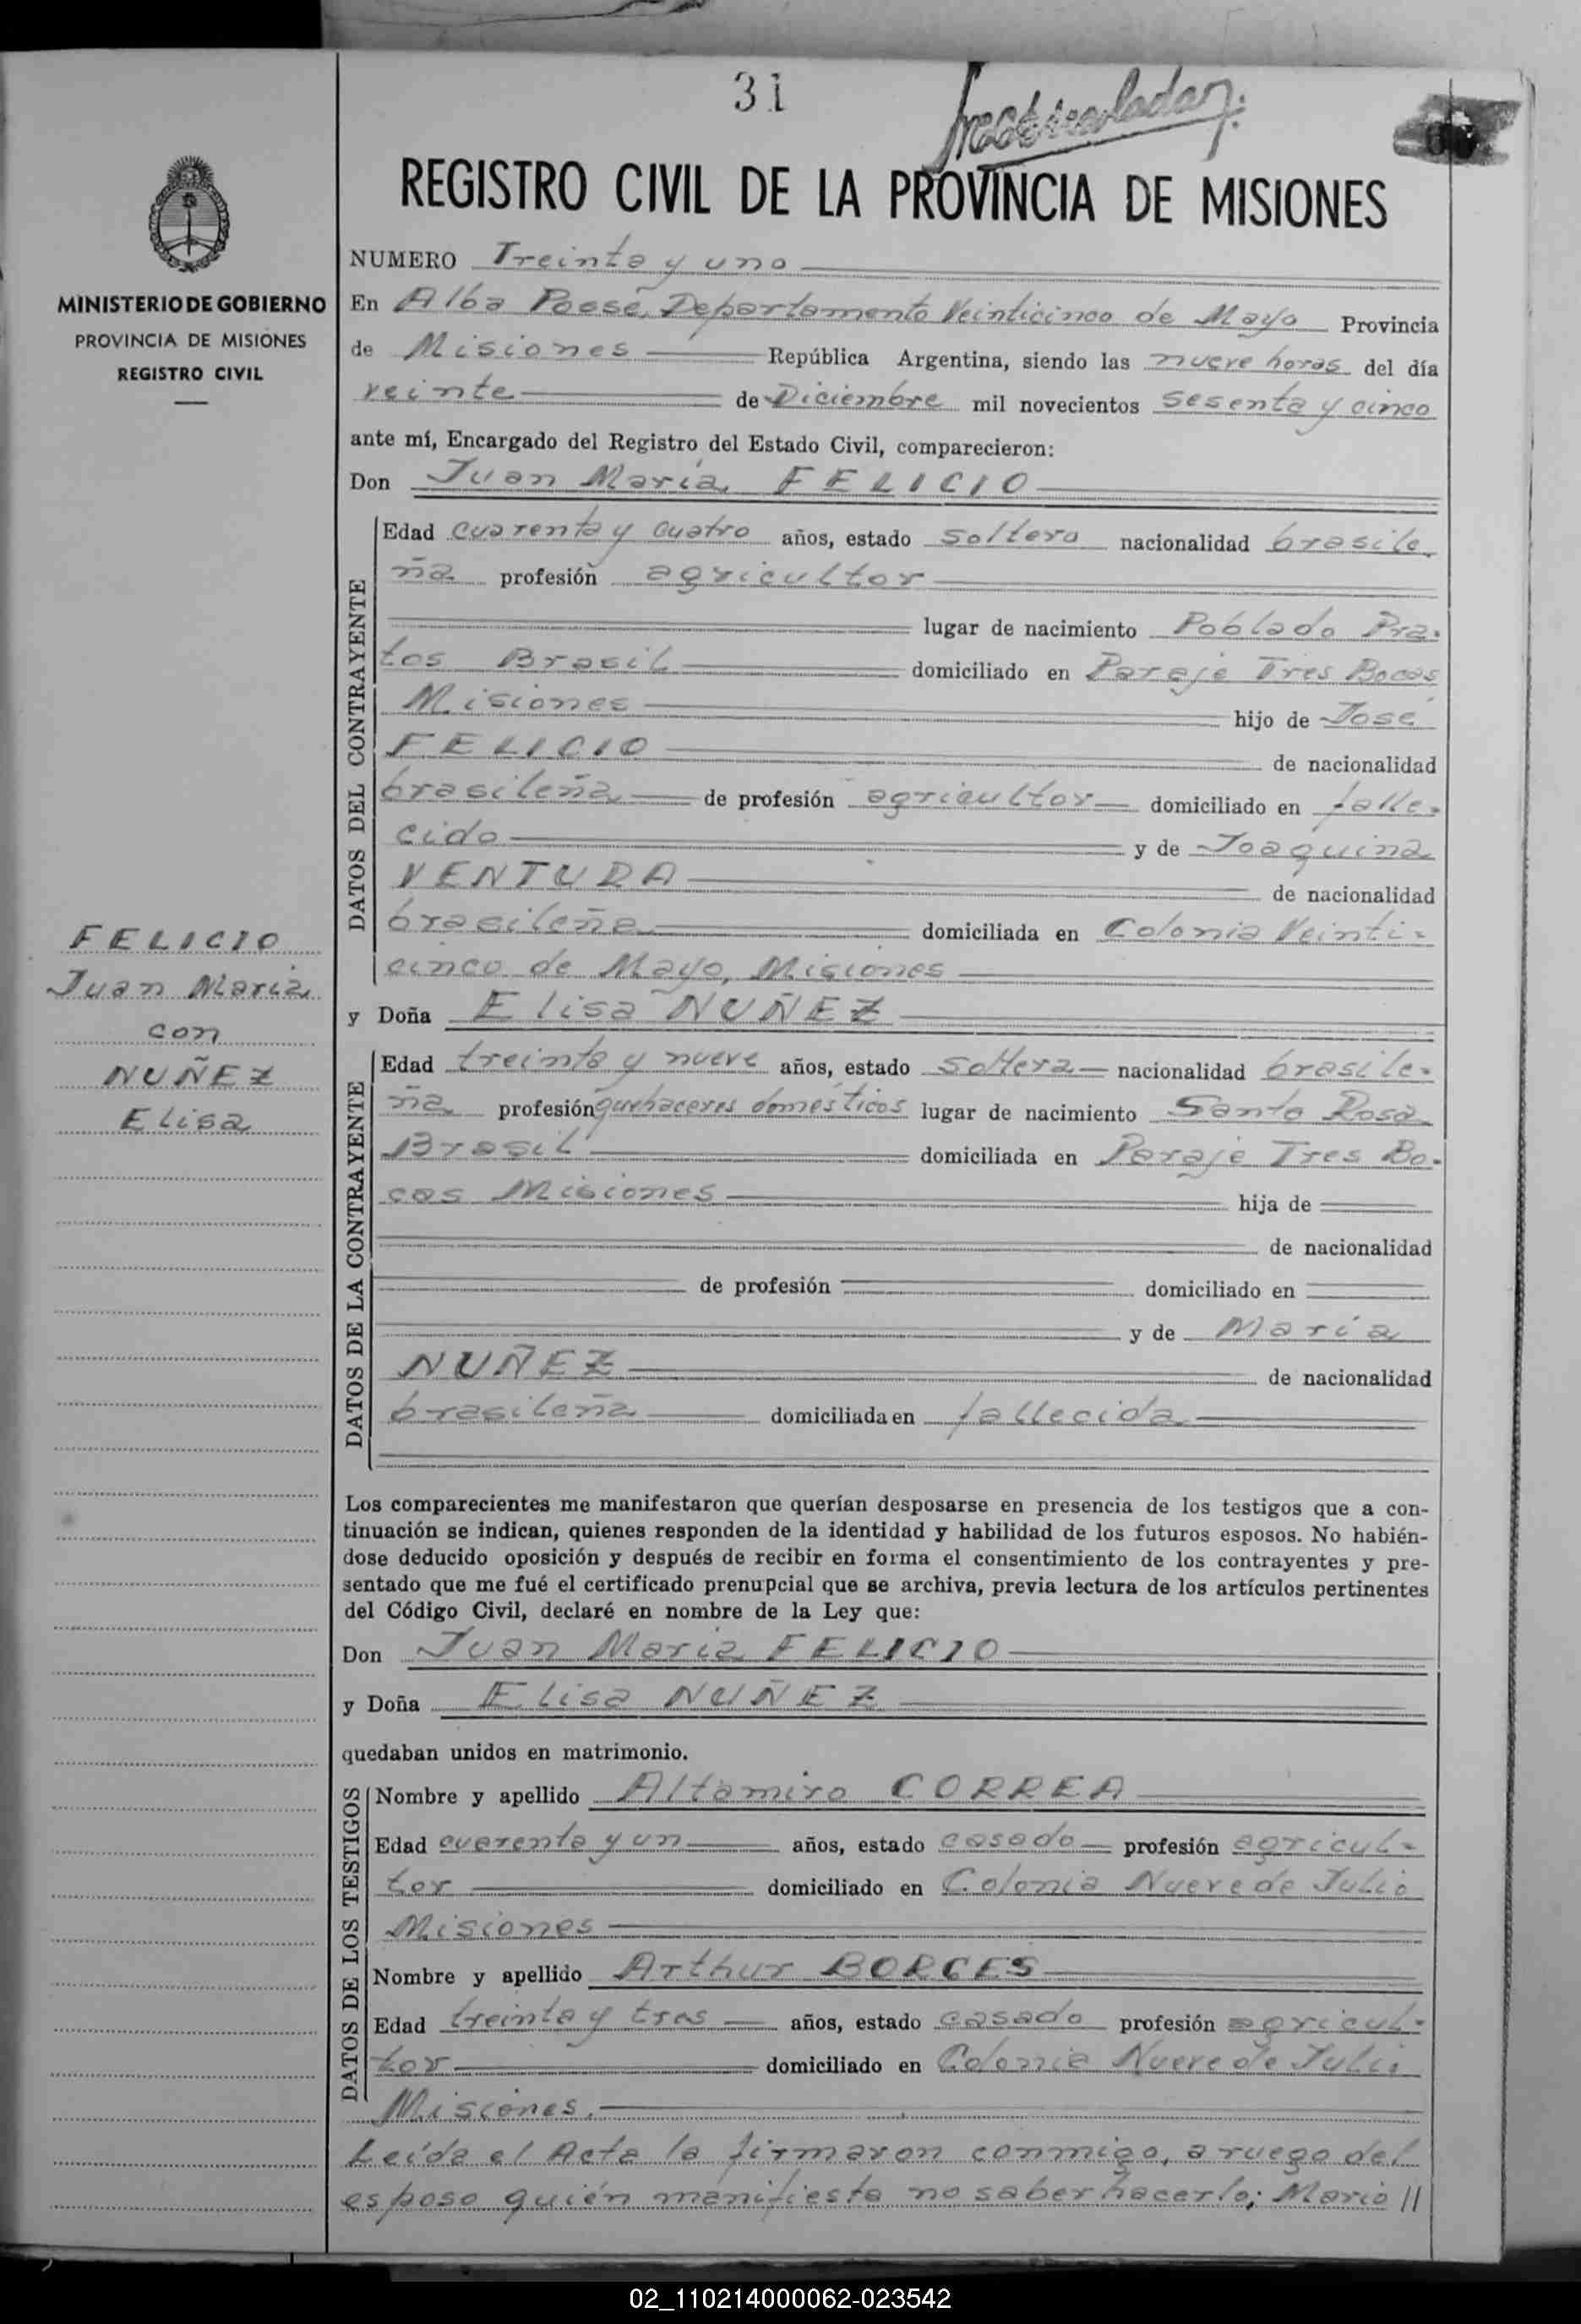 31
REGISTRO CIVIL DE LA PROVINCIA DE MISIONES
MINISTERIO DE GOBIERNO
PROVINCIA DE MISIONES
REGISTRO CIVIL
NUMERO Treinta y uno
En Alba Posse, Departamento Veinticinco de Mayo Provincia
de Misiones República Argentina, siendo las nueve horas del día
veinte de Diciembre mil novecientos sesenta y cinco
ante mí, Encargado del Registro del Estado Civil, comparecieron:
Don Juan María FELICIO
DATOS DEL CONTRAYENTE
Edad cuarenta y cuatro años, estado soltero nacionalidad brasile-
ña profesión agricultor
lugar de nacimiento Poblado Pra-
tos Brasil domiciliado en Paraje Tres Bocas
Misiones hijo de José
FELICIO de nacionalidad
brasileña de profesión agricultor domiciliado en falle-
cido y de Joaquina
VENTURA de nacionalidad
brasileña domiciliada en Colonia Veinti-
cinco de Mayo, Misiones
FELICIO
Juan María
con
NUÑEZ
Elisa
y Doña Elisa NUÑEZ
DATOS DE LA CONTRAYENTE
Edad treinta y nueve años, estado soltera nacionalidad brasile-
ña profesión quehaceres domésticos lugar de nacimiento Santa Rosa
Brasil domiciliada en Paraje Tres Bo-
cas Misiones hija de
de nacionalidad
de profesión domiciliado en
y de María
NUÑEZ de nacionalidad
brasileña domiciliada en fallecida
Los comparecientes me manifestaron que querían desposarse en presencia de los testigos que a con-
tinuación se indican, quienes responden de la identidad y habilidad de los futuros esposos. No habién-
dose deducido oposición y después de recibir en forma el consentimiento de los contrayentes y pre-
sentado que me fué el certificado prenupcial que se archiva, previa lectura de los artículos pertinentes
del Código Civil, declaré en nombre de la Ley que:
Don Juan María FELICIO
y Doña Elisa NUÑEZ
quedaban unidos en matrimonio.
DATOS DE LOS TESTIGOS
Nombre y apellido Altamiro CORREA
Edad cuarenta y un años, estado casado profesión agricul-
tor domiciliado en Colonia Nueve de Julio
Misiones
Nombre y apellido Arthur BORGES
Edad treinta y tres años, estado casado profesión agricul-
tor domiciliado en Colonia Nueve de Julio
Misiones.
Leída el Acta la firmaron conmigo, a ruego del
esposo quién manifiesta no saber hacerlo; Mario //
02_110214000062-023542